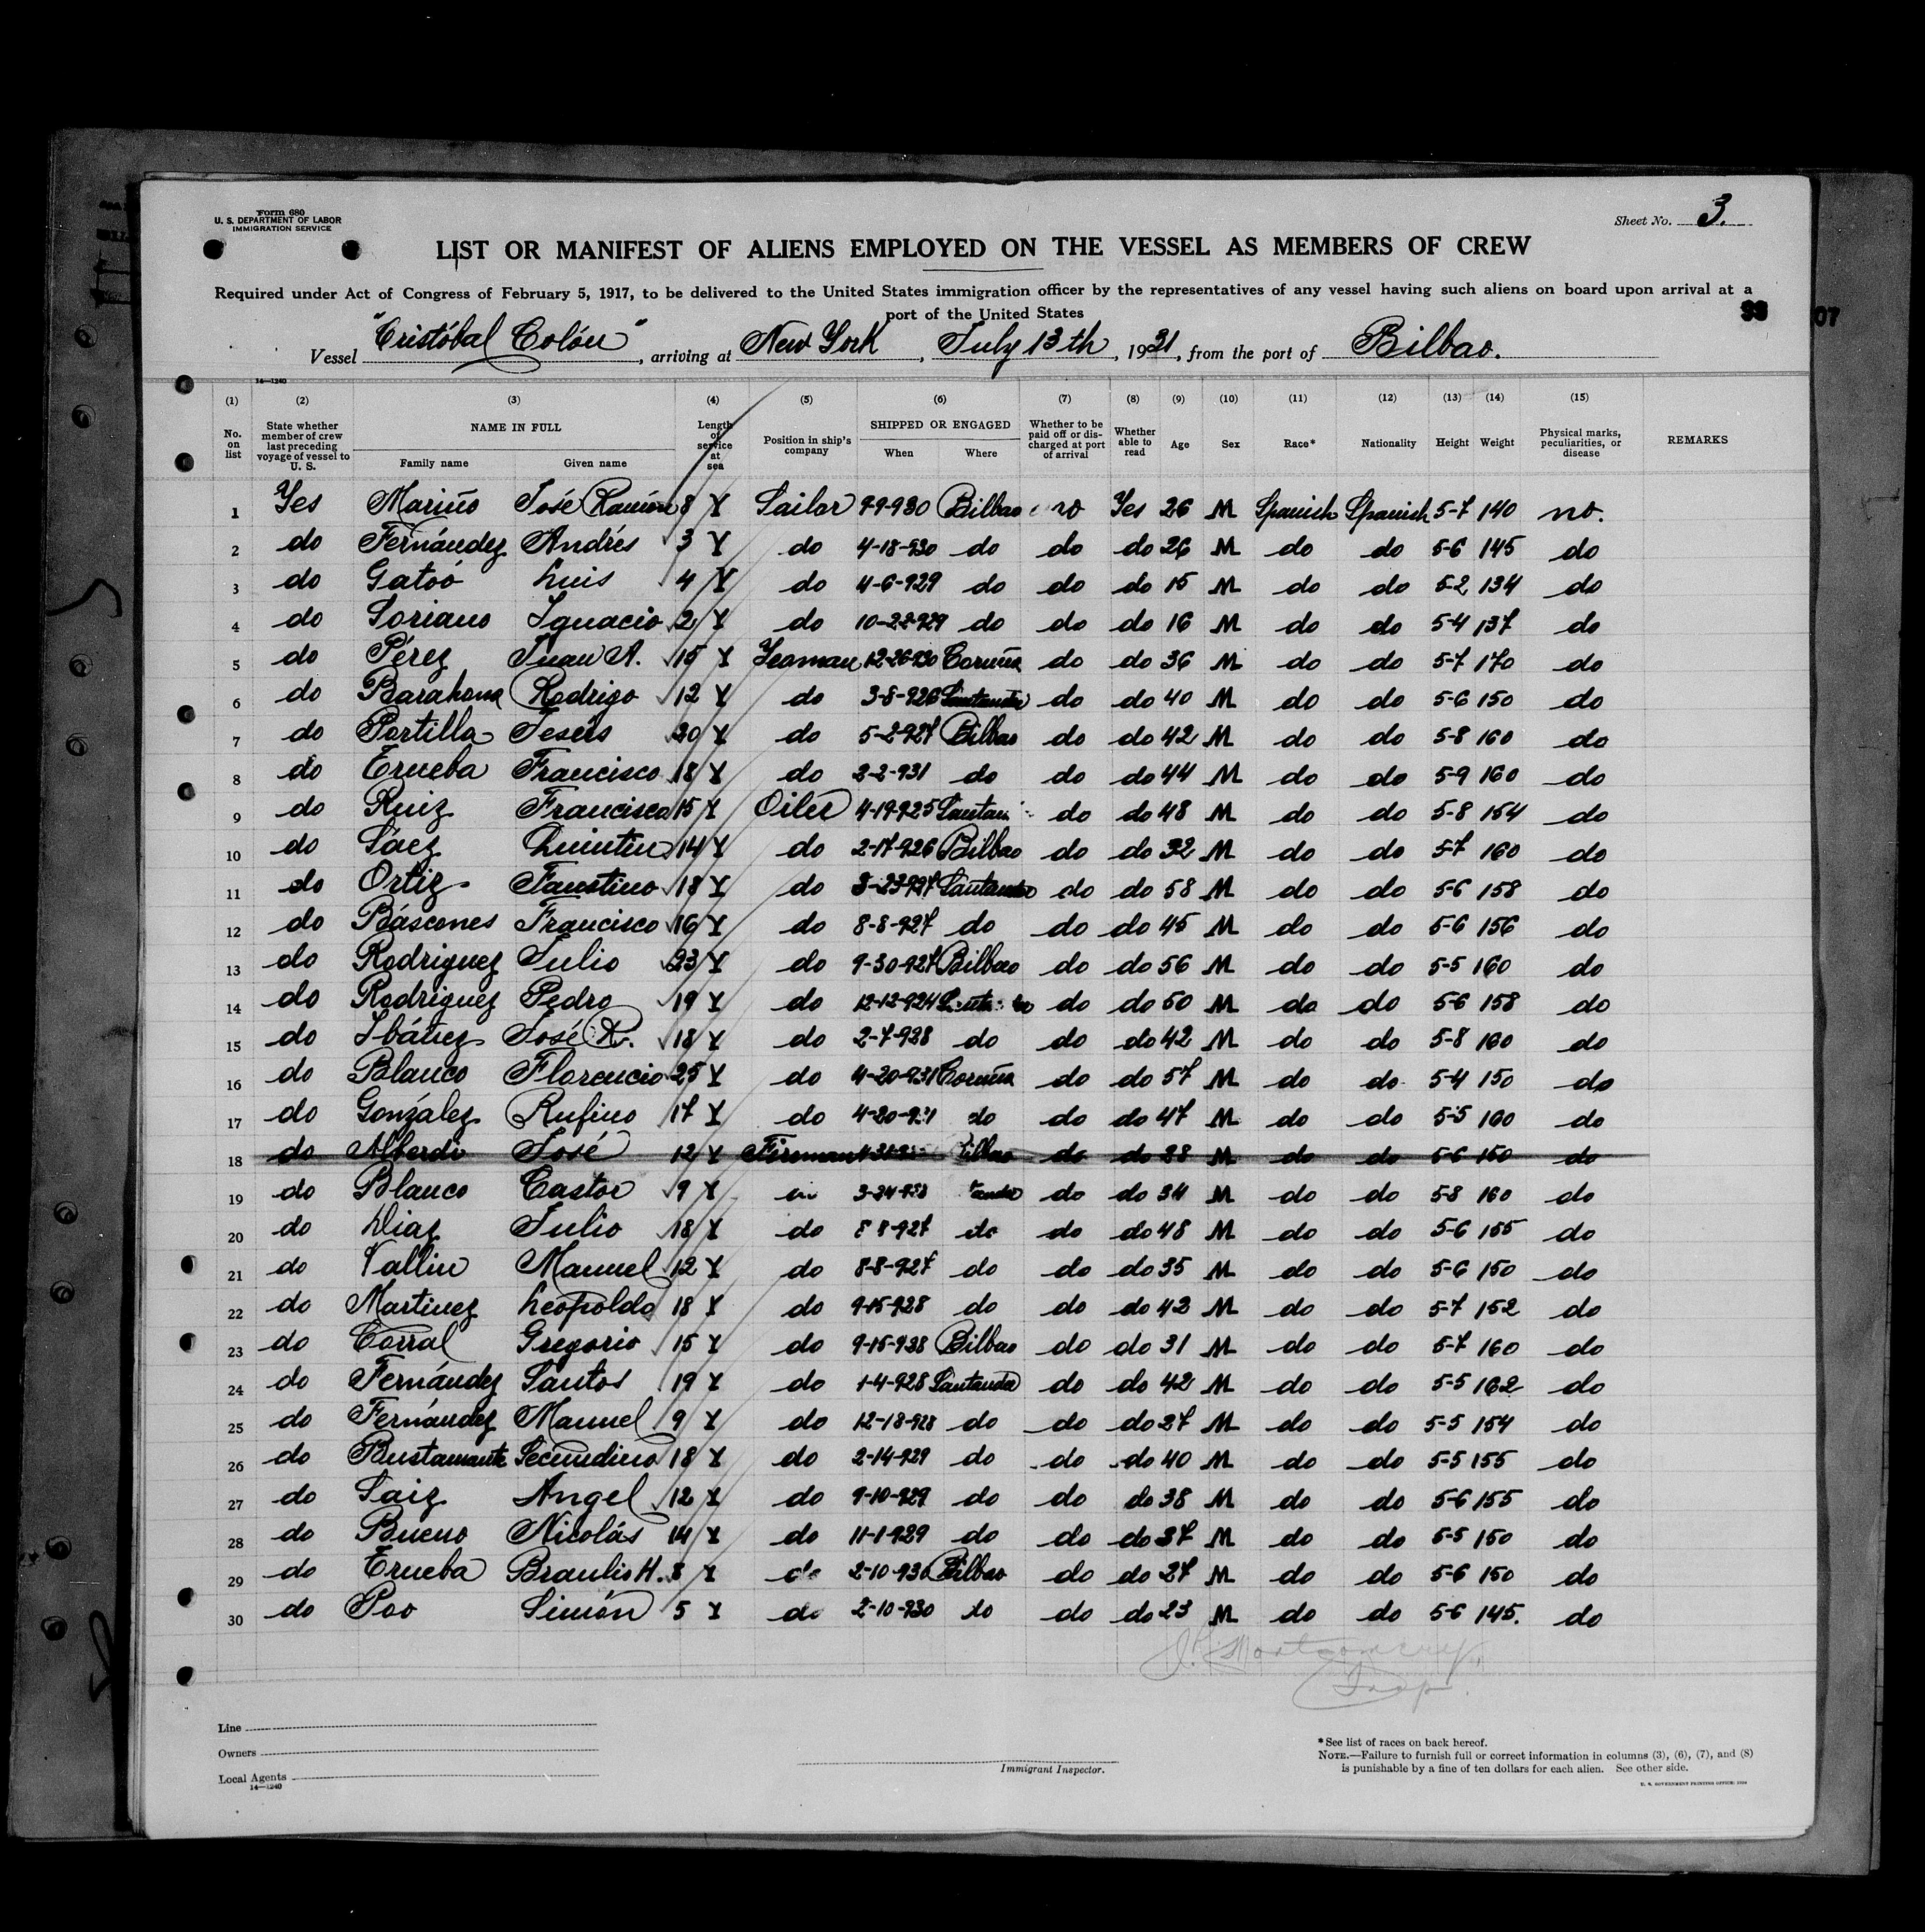 Form 680
U. S. DEPARTMENT OF LABOR
IMMIGRATION SERVICE
Sheet No. 3.
LIST OR MANIFEST OF ALIENS EMPLOYED ON THE VESSEL AS MEMBERS OF CREW
Required under Act of Congress of February 5, 1917, to be delivered to the United States immigration officer by the representatives of any vessel having such aliens on board upon arrival at a
port of the United States
07
Vessel "Cristóbal Colón", arriving at New York, July 13th, 1931, from the port of Bilbao.
14—1240
(1) (2) (3) (4) (5) (6) (7) (8) (9) (10) (11) (12) (13) (14) (15)
No. on list State whether member of crew last preceding voyage of vessel to U. S. NAME IN FULL Family name Given name Length of service at sea Position in ship's company SHIPPED OR ENGAGED When Where Whether to be paid off or discharged at port of arrival Whether able to read Age Sex Race* Nationality Height Weight Physical marks, peculiarities, or disease REMARKS
1 Yes Mariño José Ramón 8 Y Sailor 9-9-930 Bilbao no Yes 26 M Spanish Spanish 5-7 140 no.
2 do Fernández Andrés 3 Y do 4-18-930 do do do 26 M do do 5-6 145 do
3 do Gatoó Luis 4 Y do 4-6-929 do do do 15 M do do 5-2 134 do
4 do Soriano Ignacio 2 Y do 10-22-929 do do do 16 M do do 5-4 137 do
5 do Pérez Juan A. 15 Y Yeoman 12-26-930 Coruña do do 36 M do do 5-7 170 do
6 do Barahona Rodrigo 12 Y do 3-8-926 Santander do do 40 M do do 5-6 150 do
7 do Portilla Jesús 20 Y do 5-2-927 Bilbao do do 42 M do do 5-8 160 do
8 do Erueba Francisco 18 Y do 2-2-931 do do do 44 M do do 5-9 160 do
9 do Ruiz Francisco 15 Y Oiler 4-19-925 do do 48 M do do 5-8 154 do
10 do Sáez Quintin 14 Y do 2-17-926 Bilbao do do 32 M do do 5-7 160 do
11 do Ortiz Faustino 18 Y do 3-23-927 Santander do do 58 M do do 5-6 158 do
12 do Báscones Francisco 16 Y do 8-8-927 do do do 45 M do do 5-6 156 do
13 do Rodriguez Julio 23 Y do 9-30-927 Bilbao do do 56 M do do 5-5 160 do
14 do Rodriguez Pedro 19 Y do 12-12-924 do do 50 M do do 5-6 158 do
15 do Ibáñez José R. 18 Y do 2-7-928 do do do 42 M do do 5-8 160 do
16 do Blanco Florencio 25 Y do 4-20-931 Coruña do do 57 M do do 5-4 150 do
17 do González Rufino 17 Y do do do do 47 M do do 5-5 160 do
18 do Alberdi José 12 Y Fireman Bilbao do do 28 M do do 5-6 150 do
19 do Blanco Castor 9 Y do do 34 M do do 5-8 160 do
20 do Diaz Julio 18 Y do 8 8-927 do do do 48 M do do 5-6 155 do
21 do Vallin Manuel 12 Y do 8-8-927 do do do 35 M do do 5-6 150 do
22 do Martinez Leopoldo 18 Y do 9-15-928 do do do 42 M do do 5-7 152 do
23 do Corral Gregorio 15 Y do 9-15-928 Bilbao do do 31 M do do 5-7 160 do
24 do Fernández Santos 19 Y do 1-4-928 Santander do do 42 M do do 5-5 162 do
25 do Fernández Manuel 9 Y do 12-18-928 do do do 27 M do do 5-5 154 do
26 do Bustamante Secundino 18 Y do 2-14-929 do do do 40 M do do 5-5 155 do
27 do Saiz Angel 12 Y do 9-10-929 do do do 38 M do do 5-6 155 do
28 do Bueno Nicolás 14 Y do 11-1-929 do do do 37 M do do 5-5 150 do
29 do Erueba Braulio H. 8 Y do 2-10-930 Bilbao do do 27 M do do 5-6 150 do
30 do Poo Simón 5 Y do 2-10-930 do do do 23 M do do 5-6 145. do
Montgomery
Insp.
Line
Owners
Local Agents
14—1240
Immigrant Inspector.
*See list of races on back hereof.
NOTE.—Failure to furnish full or correct information in columns (3), (6), (7), and (8)
is punishable by a fine of ten dollars for each alien. See other side.